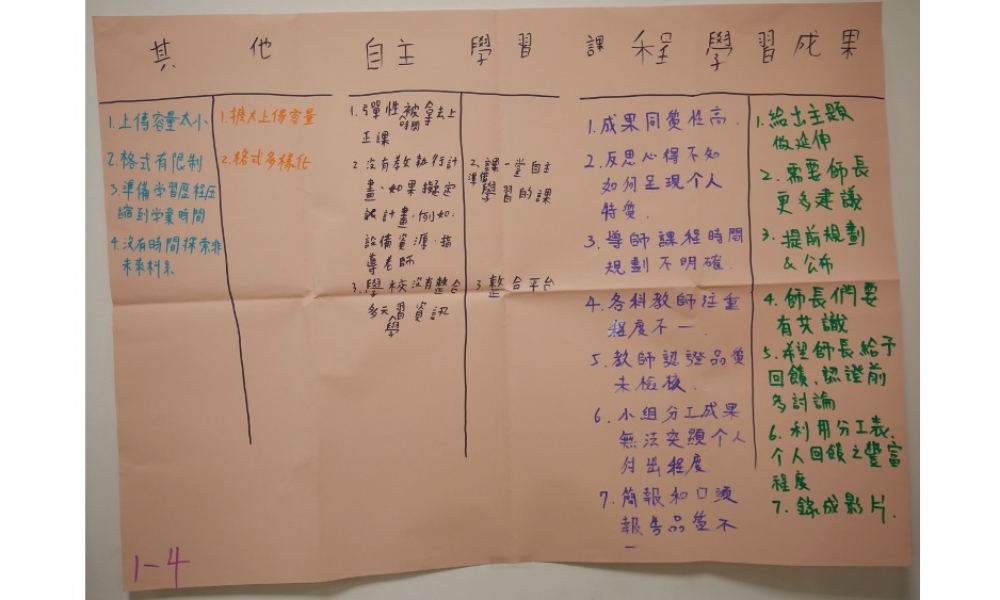 其他
1.上傳容量太小
2.格式有限制
3.準備學習歷程壓
縮到學業時間
4.沒有時間探索非
未來科系
1.擴大上傳容量
2.格式多樣化
自主學習
1.彈性被拿去上
時間
正課
2.沒有教執行計
畫、如果擬定
計畫,例如:
設備資源、指
導老師
3.學校沒有整合
多元習資訊
學
2.課一堂自主
準備
學習的課
3.整合平台
課程學習成果
1.成果同質性高.
2.反思心得不知
如何呈現個人
特質.
3.導師課程時間
規劃不明確.
4.各科教師注重
程度不一.
5.教師認證品質
未檢核.
6.小組分工成果
無法突顯個人
付出程度
7.簡報和口頭
報告品質不
一
1.給出主題
做延伸
2.需要師長
更多建議
3.提前規劃
&公布
4.師長們要
有共識
5.希望師長給予
回饋、認證前
多討論
6.利用分工表、
個人回饋之豐富
程度
7.錄成影片.
1-4